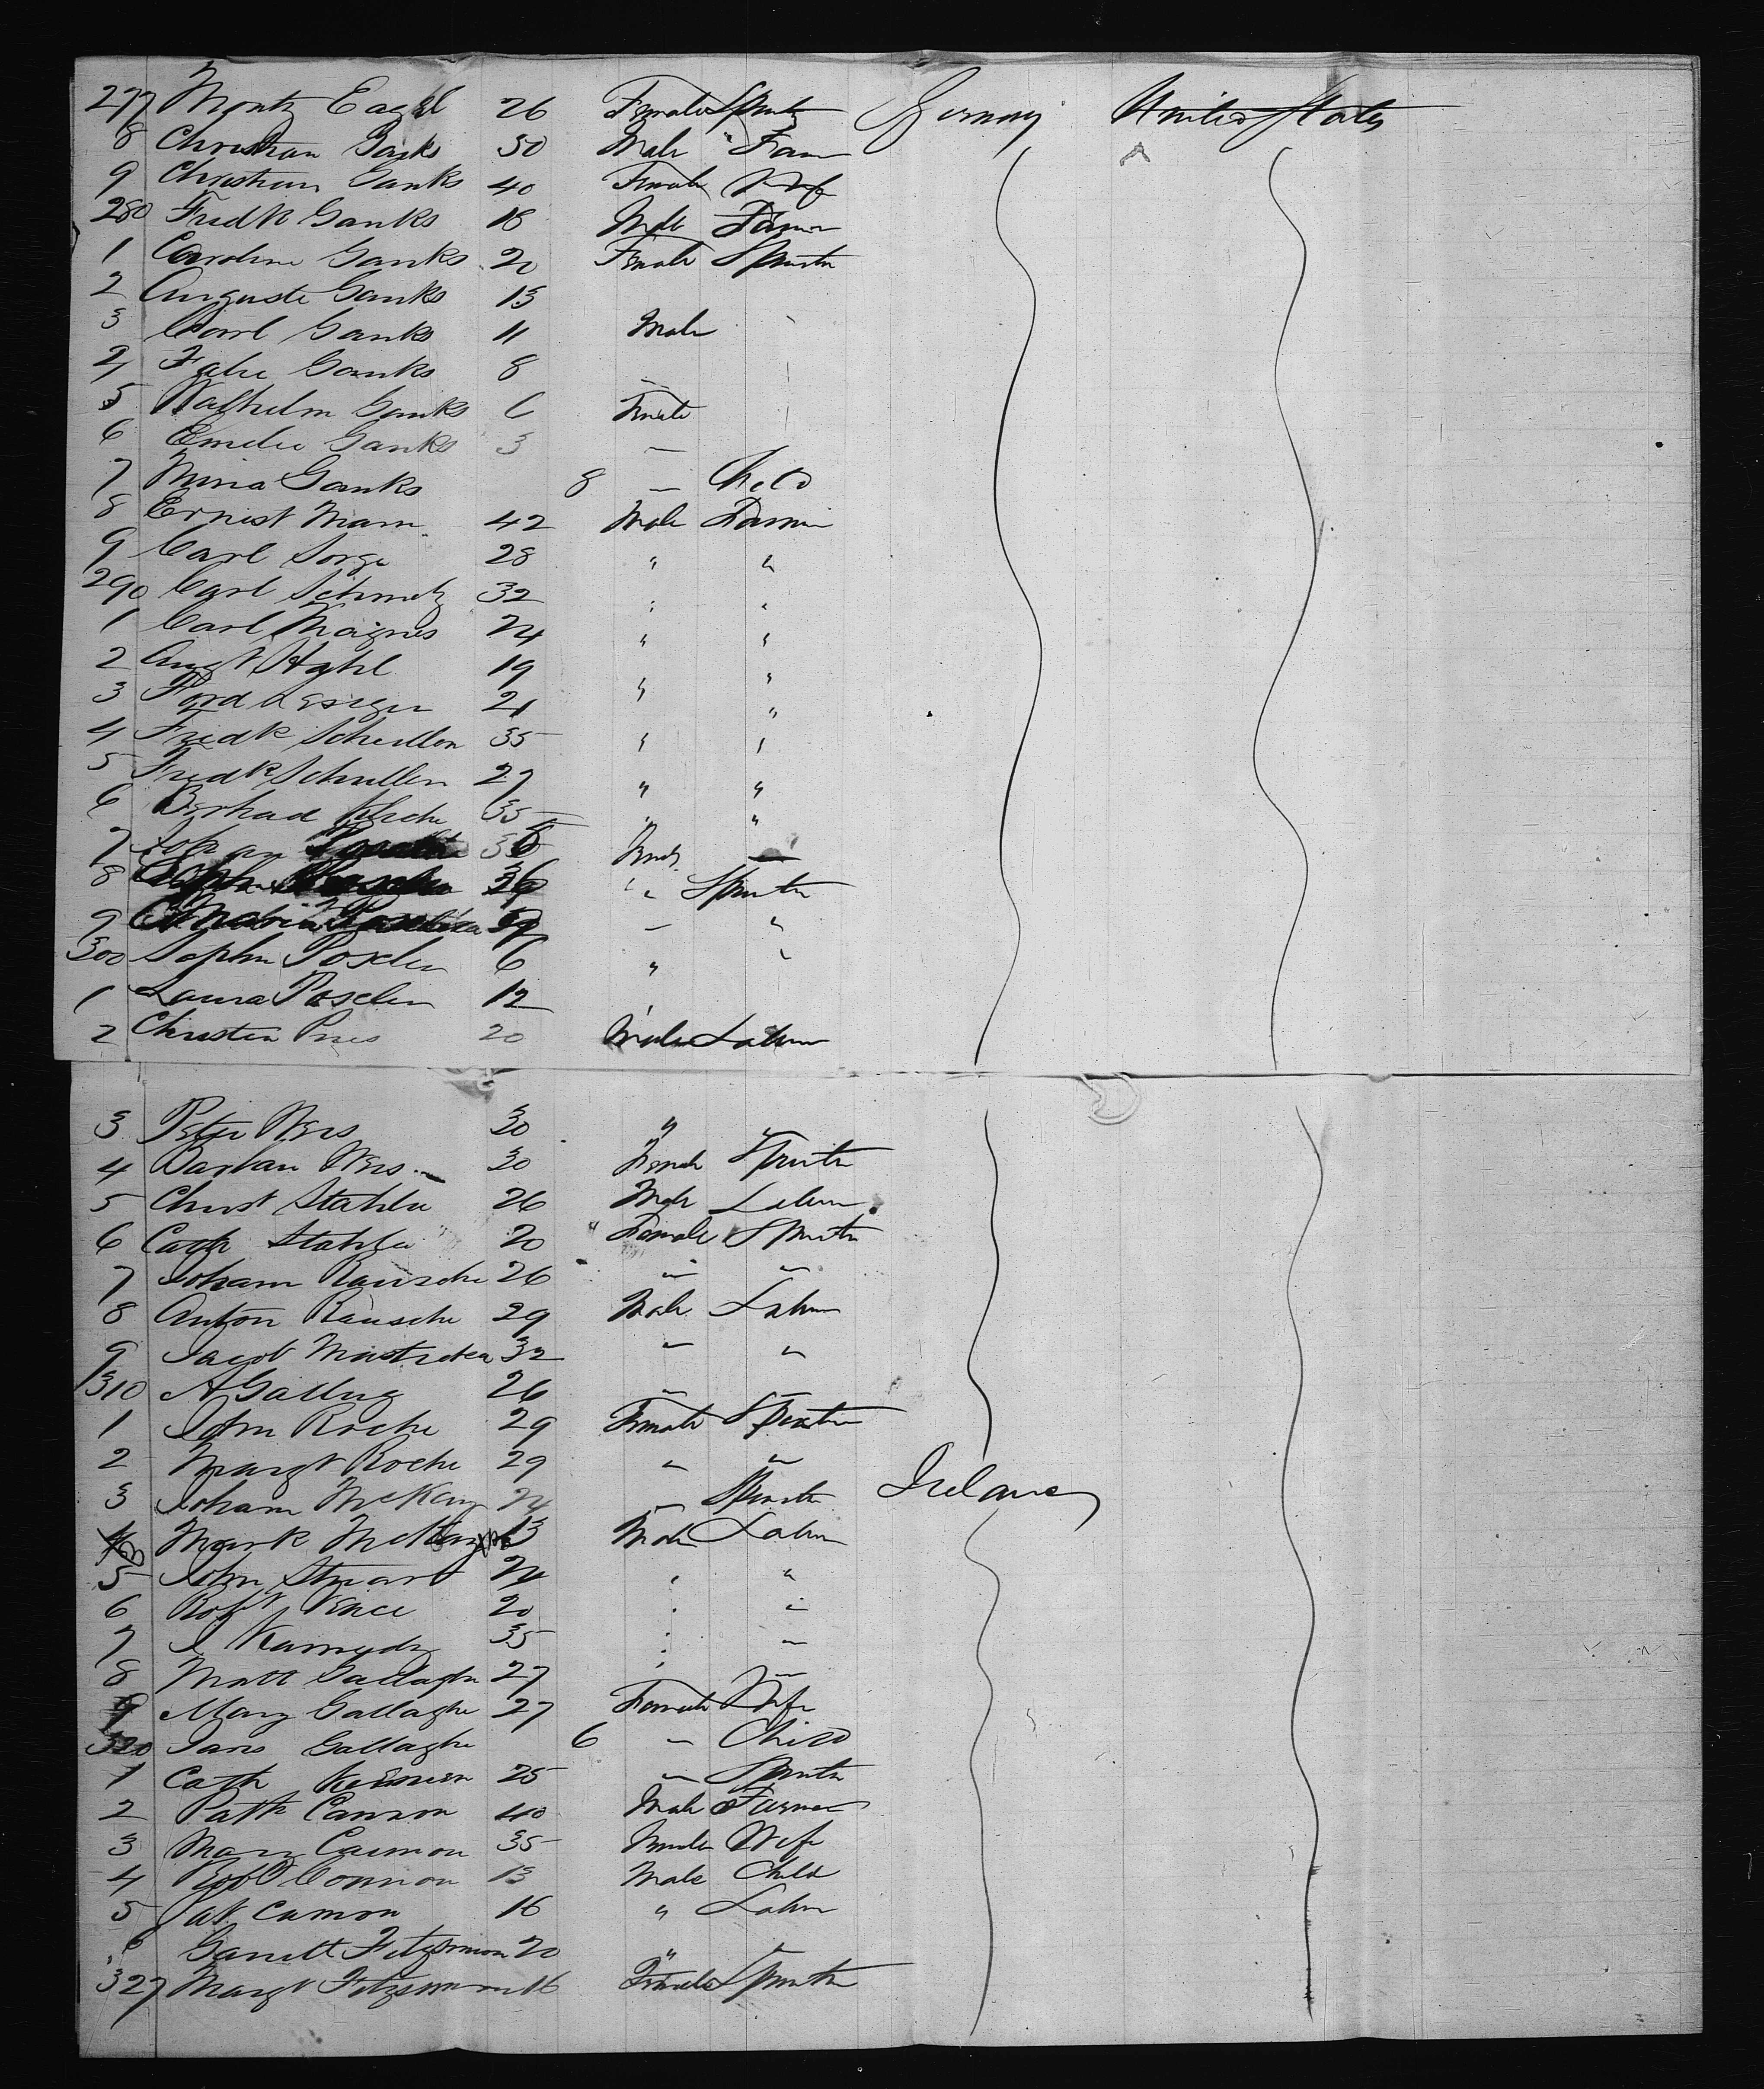 277 Montz Eagel 26 Female Spinstr Germany United States
8 Christian Ganks 50 Male " Farm
9 Christian Ganks 40 Female Wife
280 Fredk Ganks 18 Male Farmer
1 Caroline Ganks 20 Female Spinstr
2 Auguste Ganks 13
3 Carl Ganks 11 Male
4 Ganks 8 "
5 Walhelm Ganks 6 Female
6 Emelie Ganks 3 "
7 Mina Ganks 8 " Child
8 Ernest Mann 42 Male Farmer
9 Carl Sorge 28 " "
290 Carl Schmelz 32 " "
1 Carl Magnus 24 " "
2 Augt Stahl 19 " "
3 Ford 21 "
4 Fredk Schullen 35 " "
5 Fredk Schullen 27 " "
6 Berhad 35 " "
7 Johan
8 Sophi " Spinstr
9 Maria " "
300 Sophn Poselen 6 " "
1 Laura Poselen 12 "
2 Christen Pries 20 Male Labur
3 Peter Weis 30 " "
4 Barban Weis 30 Female Spinstr
5 Christ Stahlee 26 Male Labur
6 Cath Stahlee 20 " Female Spinstr
7 Joham Rausche 26 " "
8 Anton Rausche 29 Male Labur
9 Jacob 32 " "
310 A Galluz 26 " "
1 John Roche 29 Female Spinstr
2 Margt Roche 29 " "
3 Joham McKay 24 " Spinstr Ireland
4 Mark McKay 13 Male Labur
5 John Stuart 24 " "
6 Robt Vence 20 " "
7 J Kennedy 35 " "
8 Matt Gallaghe 27 " "
9 Mary Gallaghe 27 Female Wife
320 Janes Gallaghe 6 " Child
1 Cath 25 " Spinstr
2 Patk Cannon 40 Male Farmer
3 Mary Cannon 35 Female Wife
4 Robt Connon 13 Male Child
5 Pat Cannon 16 " Labur
6 Garrett Fitzsimon 20 " "
327 Margt Fitzsimmon 16 Female Spinstr